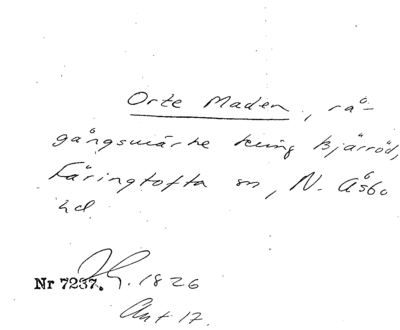 Orte Maden, rå-
gångsmärke kring Bjärröd,
Färingtofta sn, N. Åsbo
hd
Nr 7237. 1826
Akt 17.